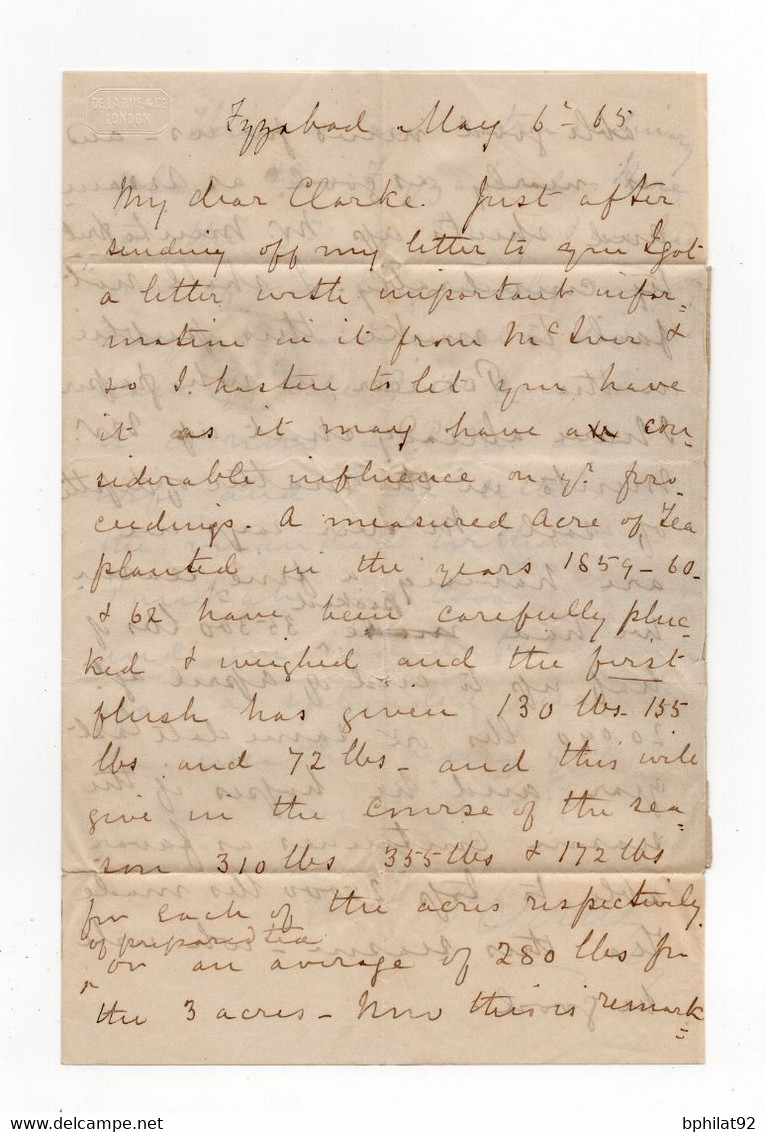 DE LA RUE & Co
LONDON
Fyzabad May 6th - 65
My dear Clarke. Just after
sending off my letter to you I got
a letter with important infor=
mation in it from McIver &
so I hasten to let you have
it as it may have a con-
siderable influence on yr. pro-
ceedings. A measured Acre of Tea
planted in the years 1859-60-
& 62 have been carefully pluc-
ked & weighed and the first
flush has given 130 lbs - 155
lbs and 72 lbs - and this will
give in the course of the sea-
son 310 lbs 355 lbs & 172 lbs
for each of the acres respectively
of prepared tea
or an average of 280 lbs for
the 3 acres - Now this is remark=
www.delcampe.net
bphilat92